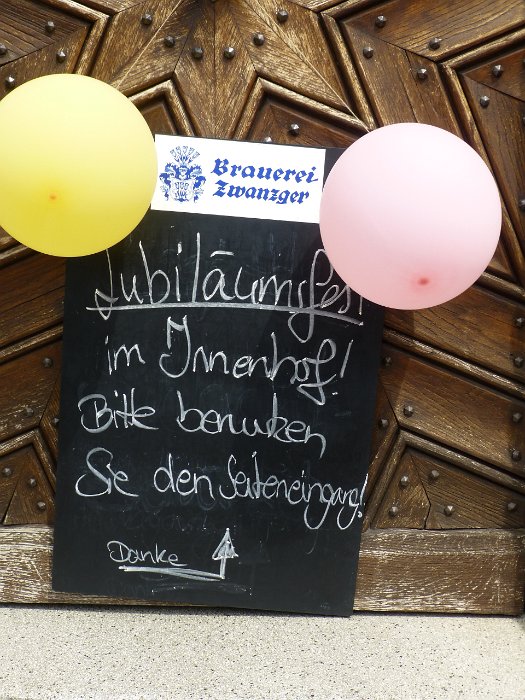 Brauerei
Zwanzger
Jubiläumsfest
im Innenhof!
Bitte benutzen
Sie den Seiteneingang!
Danke